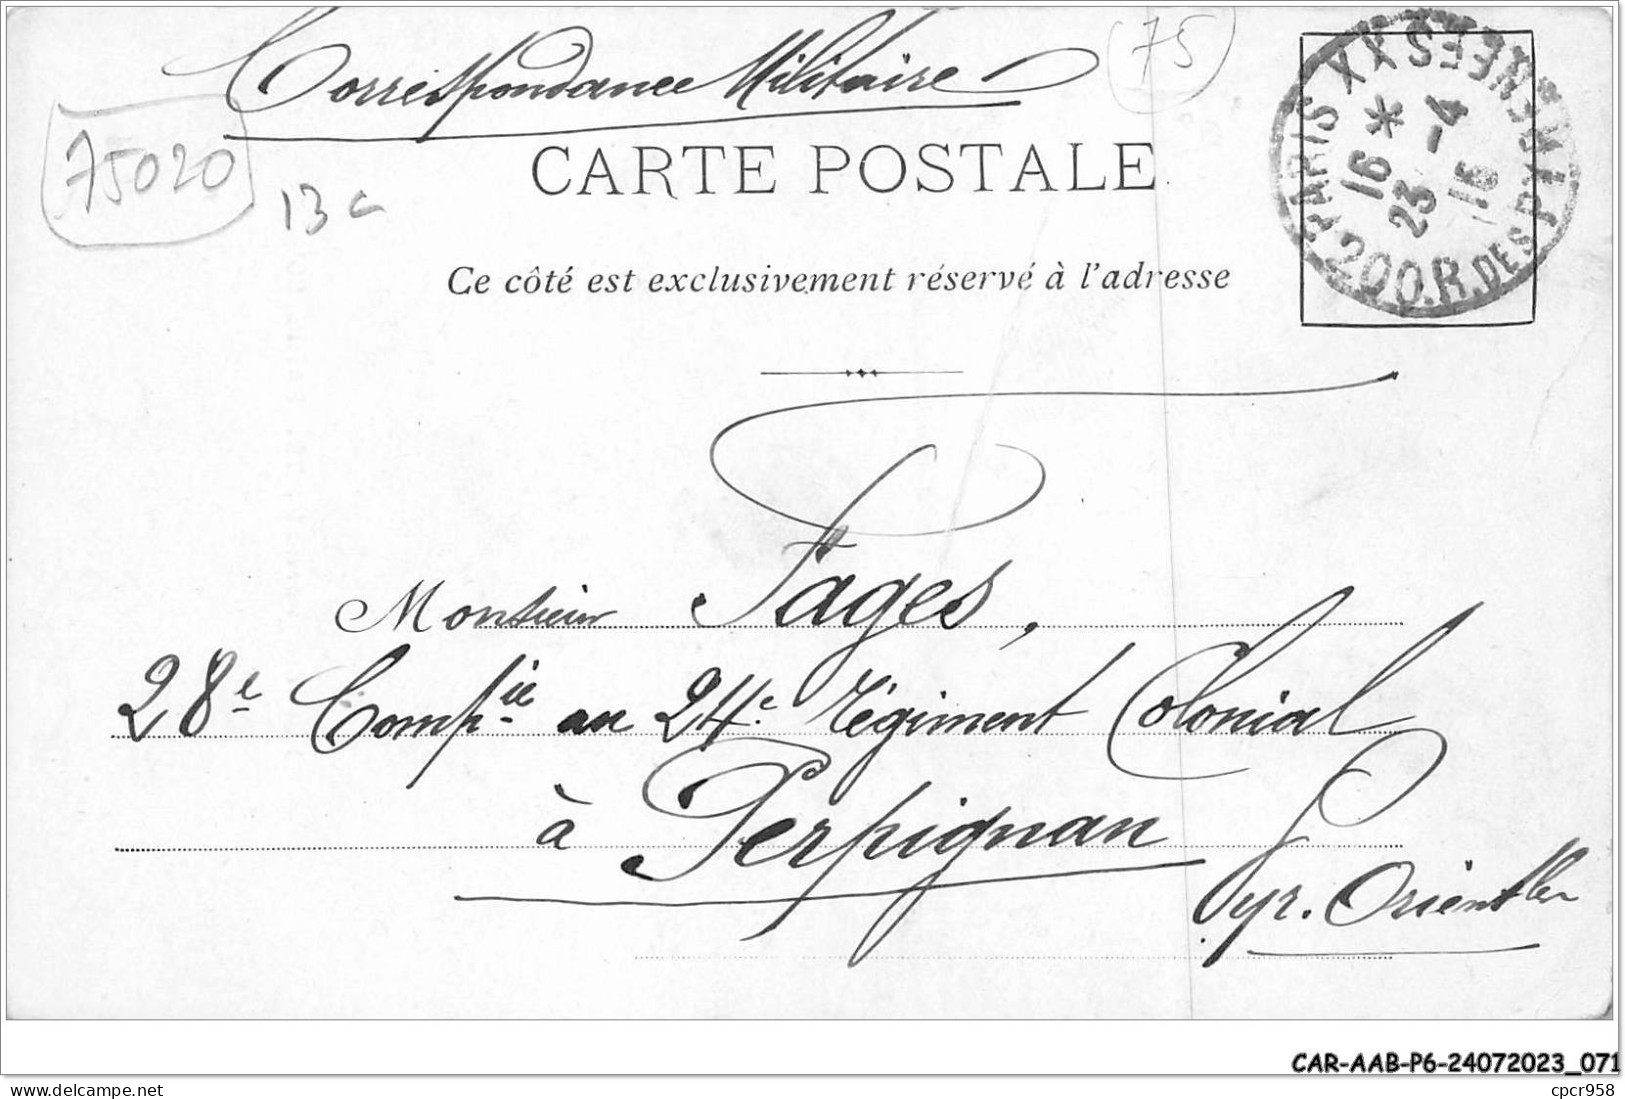 Correspondance Militaire
75
75020
13 c
CARTE POSTALE
PARIS XX * 200.R.DES PYRENEES XX
16 * 23 -4 16
Ce côté est exclusivement réservé à l'adresse
Monsieur Fages,
28e Compie au 24e Régiment Colonial
à Perpignan
Pyr. Orientles
CAR-AAB-P6-24072023_071
www.delcampe.net
cpcr958